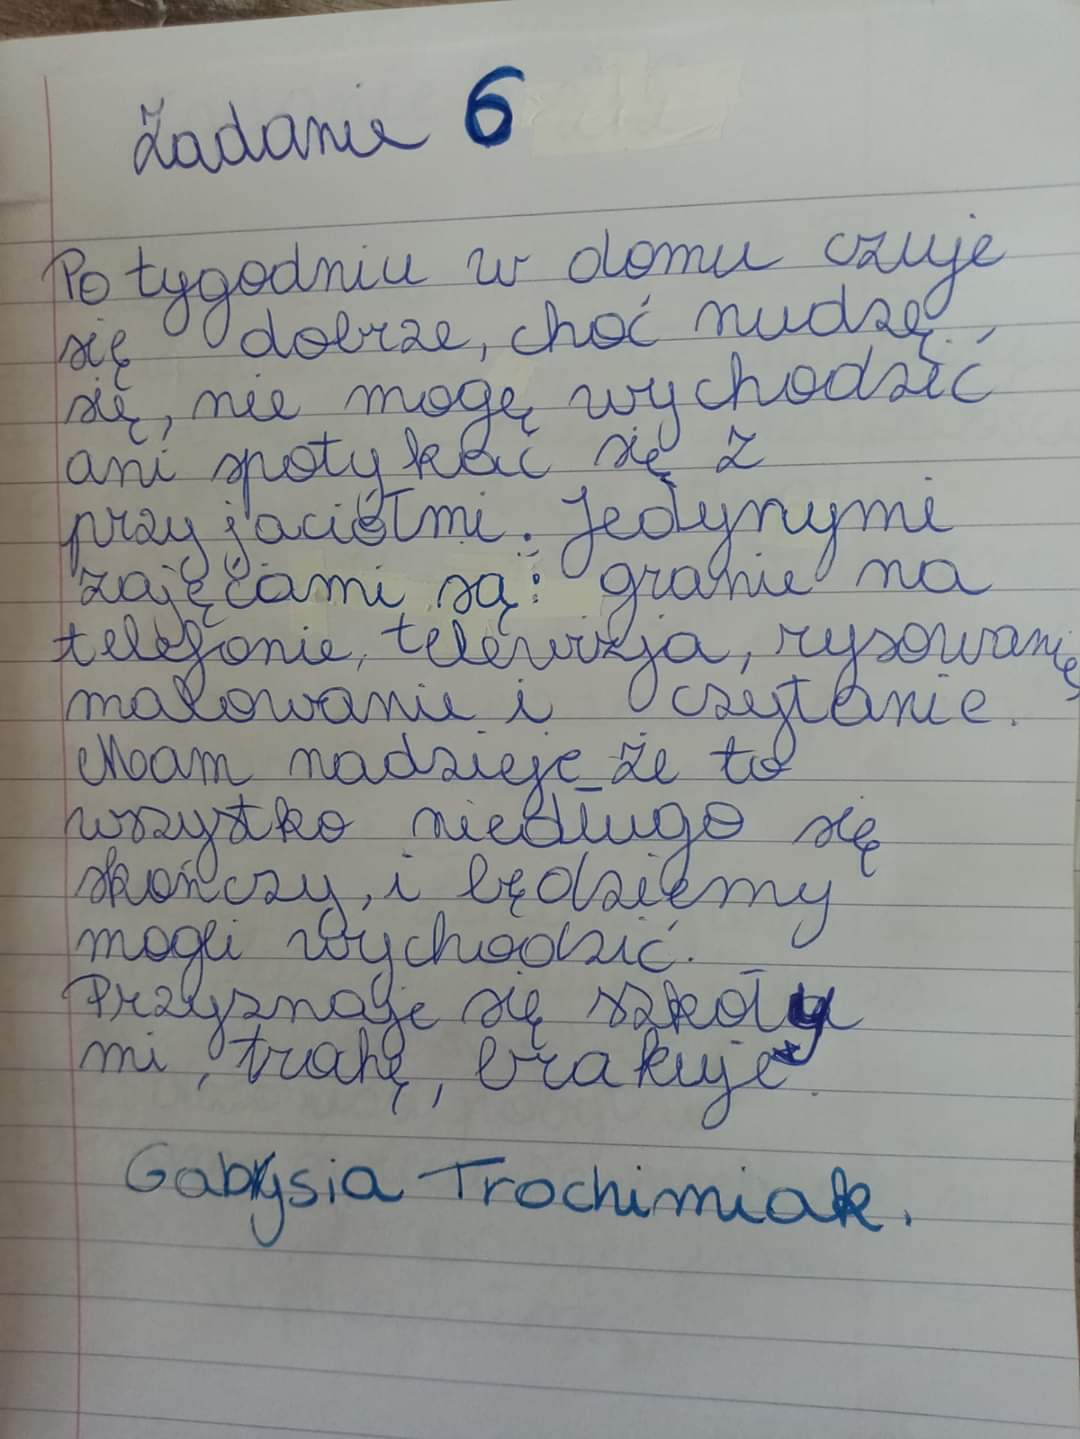 Zadanie 6
Po tygodniu w domu czuje
się dobrze, choć nudzę
się, nie mogę wychodzić
ani spotykać się z
przyjaciółmi. Jedynymi
zajęciami są: granie na
telefonie, telewizja, rysowanie,
malowanie i czytanie.
Mam nadzieje że to
wszystko niedługo się
skończy, i będziemy
mogli wychodzić.
Przyznaje się szkoły
mi, trohę, brakuje.
Gabrysia Trochimiak.